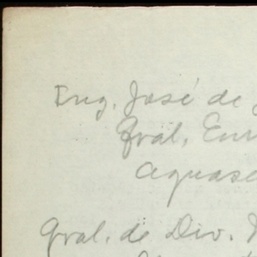 Ing. José de
Gral. Enri
Aguasc
Gral. de Div.